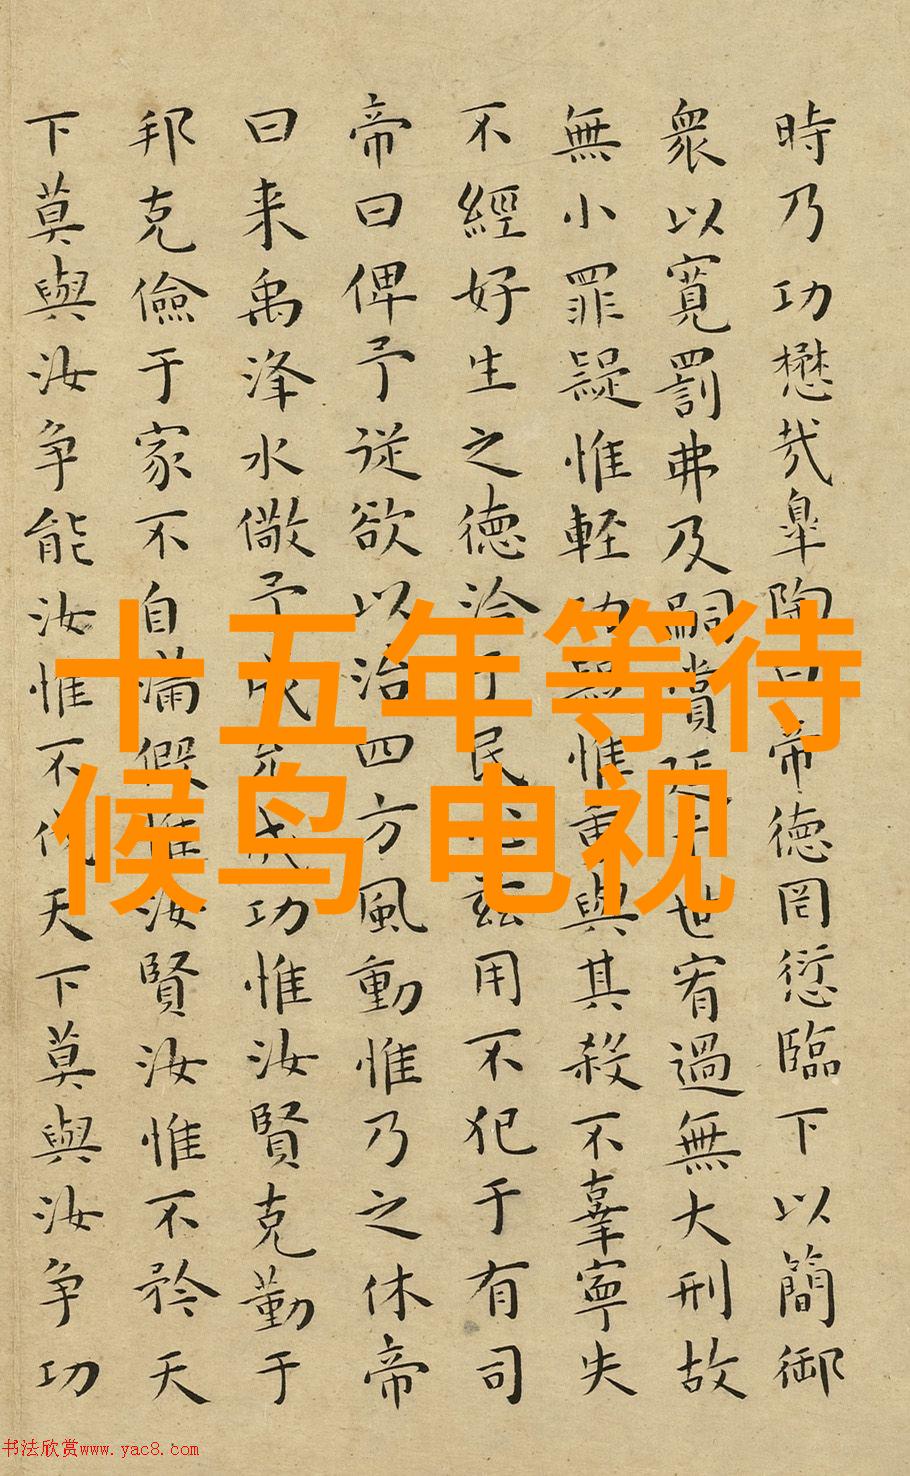 時乃功懋哉皐陶曰帝德罔愆臨下以簡御
衆以寬罰弗及嗣賞延于世宥過無大刑故
無小罪疑惟輕功疑惟重與其殺不辜寧失
不經好生之德洽于民心茲用不犯于有司
帝曰俾予從欲以治四方風動惟乃之休帝
曰来禹洚水儆予成允成功惟汝賢克勤于
邦克儉于家不自滿假惟汝賢汝惟不矜天
下莫與汝争能汝惟不伐天下莫與汝争功
十五年等待
候鸟 电视
书法欣赏www.yac8.com